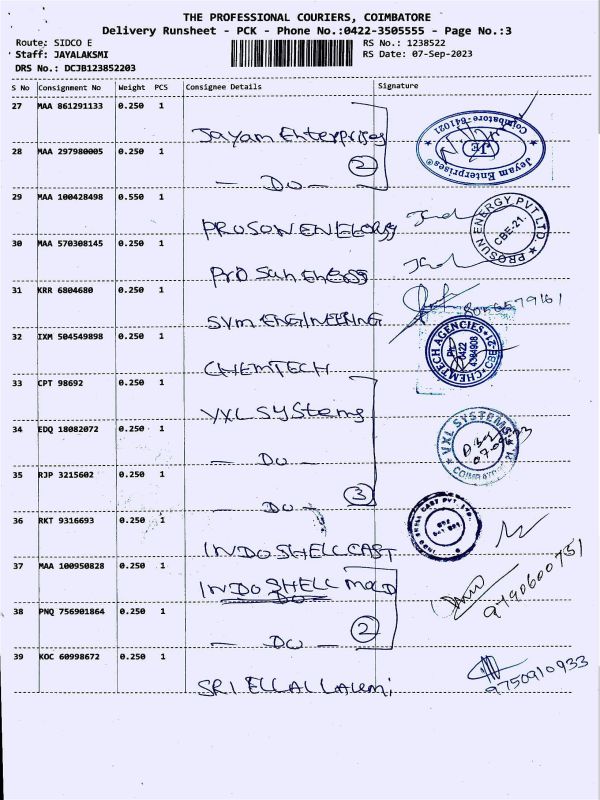 THE PROFESSIONAL COURIERS, COIMBATORE
Delivery Runsheet - PCK - Phone No.:0422-3505555 - Page No.:3
Route: SIDCO E
RS No.: 1238522
Staff: JAYALAKSMI
RS Date: 07-Sep-2023
DRS No.: DCJB123852203
S No Consignment No Weight PCS Consignee Details Signature
27 MAA 861291133 0.250 1
Jayam Enterprises
Jeyam Enterprises® Coimbatore-641021 JE
28 MAA 297980005 0.250 1
- Do - 2
29 MAA 100428498 0.550 1
PROSUN ENERGY PVT LTD. CBE-21.
30 MAA 570308145 0.250 1
Pro Sun Energy
31 KRR 6804680 0.250 1
SVM ENGINEERING
32 IXM 504549898 0.250 1
CHEMTECH
CHEMTECH AGENCIES
33 CPT 98692 0.250 1
VXL SYStems
34 EDQ 18082072 0.250 1
- Do -
VXL SYSTEMS
35 RJP 3215602 0.250 1
- Do - 3
36 RKT 9316693 0.250 1
INDO SHELL CAST
INDO SHELL CAST PVT LTD.
37 MAA 100950828 0.250 1
INDO SHELL MOLD
9790600751
38 PNQ 756901864 0.250 1
- Do - 2
39 KOC 60998672 0.250 1
SRI
9750910933